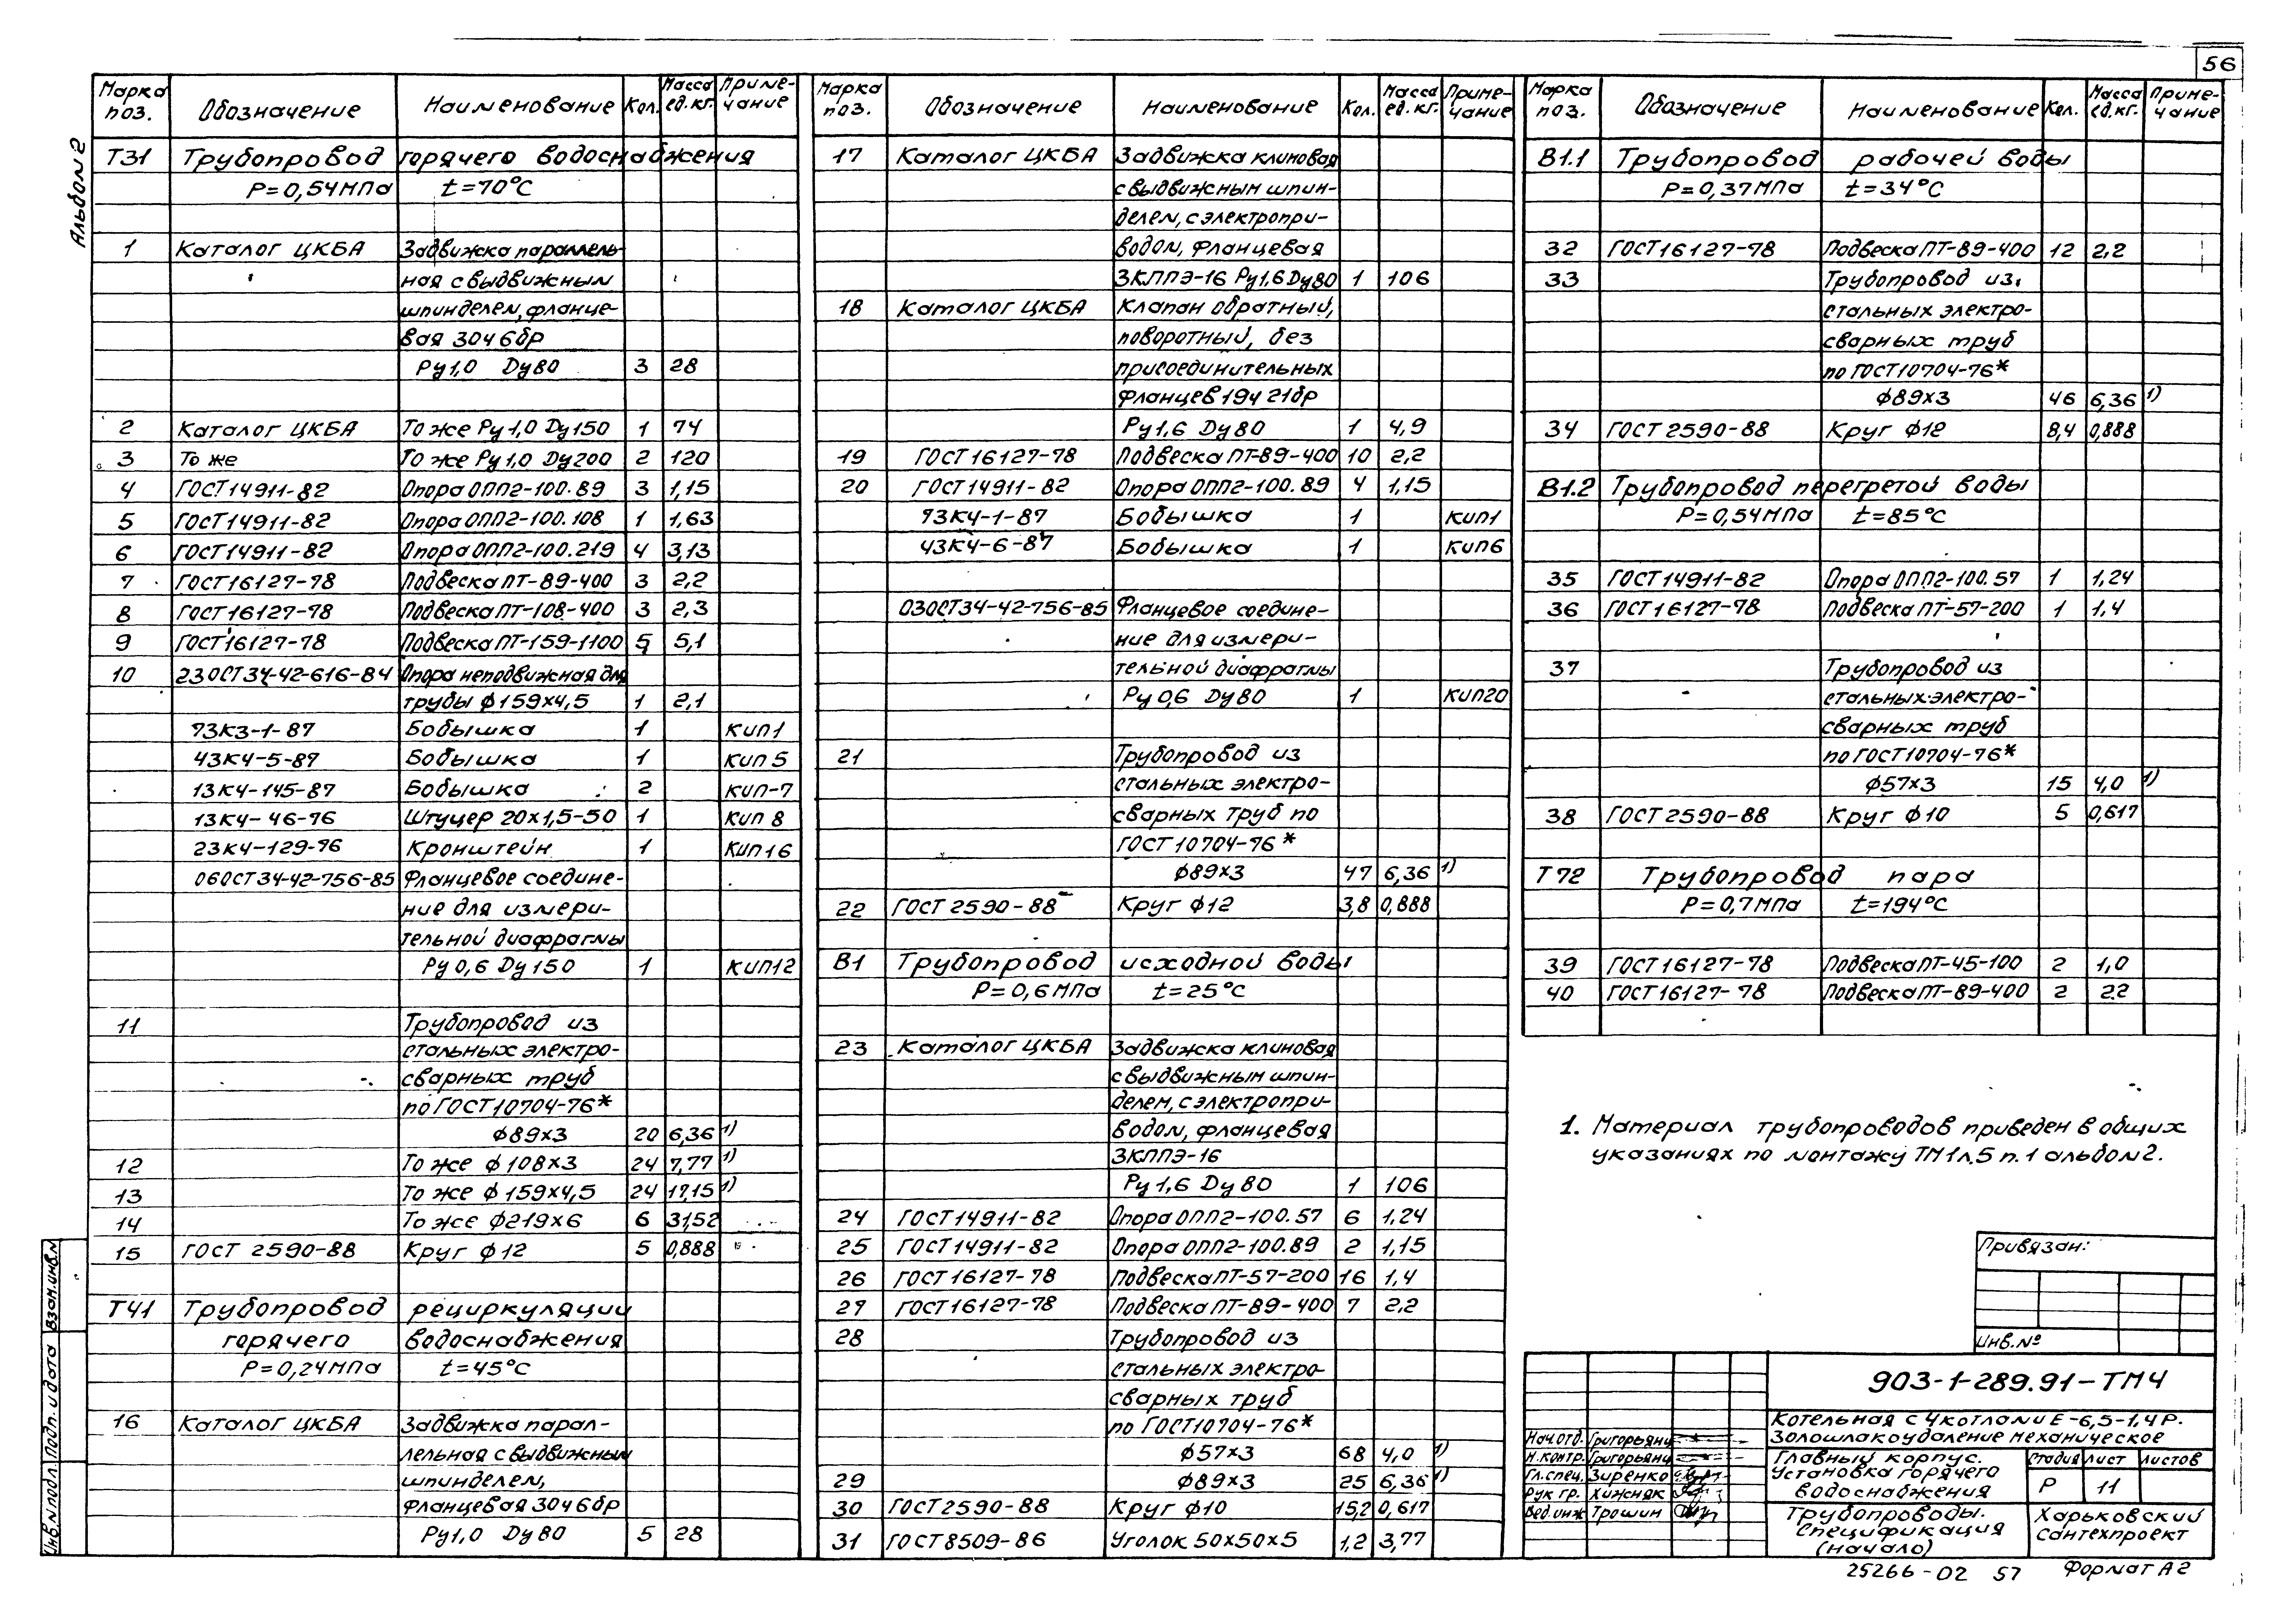 56
Альбом 2
Марка поз. Обозначение Наименование Кол. Масса ед.кг. Приме-чание
Т31 Трубопровод горячего водоснабжения
Р=0,54МПа t=70°С
1 Каталог ЦКБА Задвижка параллель-
ная с выдвижным
шпинделем, фланце-
вая 30ч6бр
Ру1,0 Dу80 3 28
2 Каталог ЦКБА То же Ру1,0 Dу150 1 74
3 То же То же Ру1,0 Dу200 2 120
4 ГОСТ14911-82 Опора ОПП2-100.89 3 1,15
5 ГОСТ14911-82 Опора ОПП2-100.108 1 1,63
6 ГОСТ14911-82 Опора ОПП2-100.219 4 3,13
7 ГОСТ16127-78 Подвеска ПТ-89-400 3 2,2
8 ГОСТ16127-78 Подвеска ПТ-108-400 3 2,3
9 ГОСТ16127-78 Подвеска ПТ-159-1100 5 5,1
10 23ОСТ34-42-616-84 Опора неподвижная для
трубы ф159х4,5 1 2,1
73К3-1-87 Бобышка 1 КИП1
43К4-5-87 Бобышка 1 КИП5
13К4-145-87 Бобышка 2 КИП-7
13К4-46-76 Штуцер 20х1,5-50 1 КИП 8
23К4-129-76 Кронштейн 1 КИП16
06ОСТ34-42-756-85 Фланцевое соедине-
ние для измери-
тельной диафрагмы
Ру0,6 Dу150 1 КИП12
11 Трубопровод из
стальных электро-
сварных труб
по ГОСТ10704-76*
ф89х3 20 6,36 1)
12 То же ф108х3 24 7,77 1)
13 То же ф159х4,5 24 17,15 1)
14 То же ф219х6 6 31,52
15 ГОСТ 2590-88 Круг ф12 5 0,888
Т41 Трубопровод рециркуляции
горячего водоснабжения
Р=0,24МПа t=45°С
16 Каталог ЦКБА Задвижка парал-
лельная с выдвижным
шпинделем,
фланцевая 30ч6бр
Ру1,0 Dу80 5 28
Марка поз. Обозначение Наименование Кол. Масса ед.кг. Приме-чание
17 Каталог ЦКБА Задвижка клиновая
с выдвижным шпин-
делем, с электропри-
водом, фланцевая
ЗКЛПЭ-16 Ру1,6 Dу80 1 106
18 Каталог ЦКБА Клапан обратный,
поворотный, без
присоединительных
фланцев 19ч21бр
Ру1,6 Dу80 1 4,9
19 ГОСТ16127-78 Подвеска ПТ-89-400 10 2,2
20 ГОСТ14911-82 Опора ОПП2-100.89 4 1,15
73К4-1-87 Бобышка 1 КИП1
43К4-6-87 Бобышка 1 КИП6
03ОСТ34-42-756-85 Фланцевое соедине-
ние для измери-
тельной диафрагмы
Ру0,6 Dу80 1 КИП20
21 Трубопровод из
стальных электро-
сварных труб по
ГОСТ 10704-76*
ф89х3 47 6,36 1)
22 ГОСТ 2590-88 Круг ф12 3,8 0,888
В1 Трубопровод исходной воды
Р=0,6МПа t=25°С
23 Каталог ЦКБА Задвижка клиновая
с выдвижным шпин-
делем, с электропри-
водом, фланцевая
ЗКЛПЭ-16
Ру1,6 Dу80 1 106
24 ГОСТ14911-82 Опора ОПП2-100.57 6 1,24
25 ГОСТ14911-82 Опора ОПП2-100.89 2 1,15
26 ГОСТ16127-78 Подвеска ПТ-57-200 16 1,4
27 ГОСТ16127-78 Подвеска ПТ-89-400 7 2,2
28 Трубопровод из
стальных электро-
сварных труб
по ГОСТ10704-76*
ф57х3 68 4,0 1)
29 ф89х3 25 6,36 1)
30 ГОСТ2590-88 Круг ф10 15,2 0,617
31 ГОСТ8509-86 Уголок 50х50х5 1,2 3,77
Марка поз. Обозначение Наименование Кол. Масса ед.кг. Приме-чание
В1.1 Трубопровод рабочей воды
Р=0,37МПа t=34°С
32 ГОСТ16127-78 Подвеска ПТ-89-400 12 2,2
33 Трубопровод из
стальных электро-
сварных труб
по ГОСТ10704-76*
ф89х3 46 6,36 1)
34 ГОСТ 2590-88 Круг ф12 8,4 0,888
В1.2 Трубопровод перегретой воды
Р=0,54МПа t=85°С
35 ГОСТ14911-82 Опора ОПП2-100.57 1 1,24
36 ГОСТ16127-78 Подвеска ПТ-57-200 1 1,4
37 Трубопровод из
стальных электро-
сварных труб
по ГОСТ10704-76*
ф57х3 15 4,0 1)
38 ГОСТ 2590-88 Круг ф10 5 0,617
Т72 Трубопровод пара
Р=0,7МПа t=194°С
39 ГОСТ16127-78 Подвеска ПТ-45-100 2 1,0
40 ГОСТ16127-78 Подвеска ПТ-89-400 2 2,2
1. Материал трубопроводов приведен в общих
указаниях по монтажу ТМ1л.5 п.1 альбом 2.
Привязан:
Инв.№
903-1-289.91-ТМ4
Котельная с 4 котлами Е-6,5-1,4Р.
Золошлакоудаление механическое
Нач.отд. Григорьянц
Н.контр. Григорьянц
Гл.спец. Зиренко
Рук гр. Хижняк
Вед.инж Трошин
Главный корпус.
Установка горячего
водоснабжения
Стадия Лист Листов
Р 11
Трубопроводы.
Спецификация
(начало)
Харьковский
Сантехпроект
25266-02 57 Формат А2
Инв.№ подл. Подп. и дата Взам.инв.№